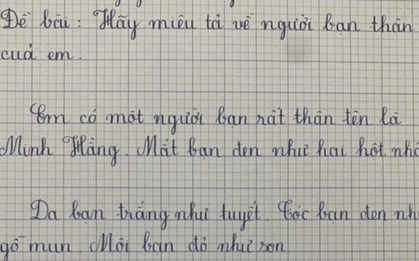 Đề bài: Hãy miêu tả về người bạn thân
của em.
Em có một người bạn rất thân tên là
Minh Hằng. Mắt bạn đen như hai hột
Da bạn trắng như tuyết. Tóc bạn đen
gỗ mun. Môi bạn đỏ như son